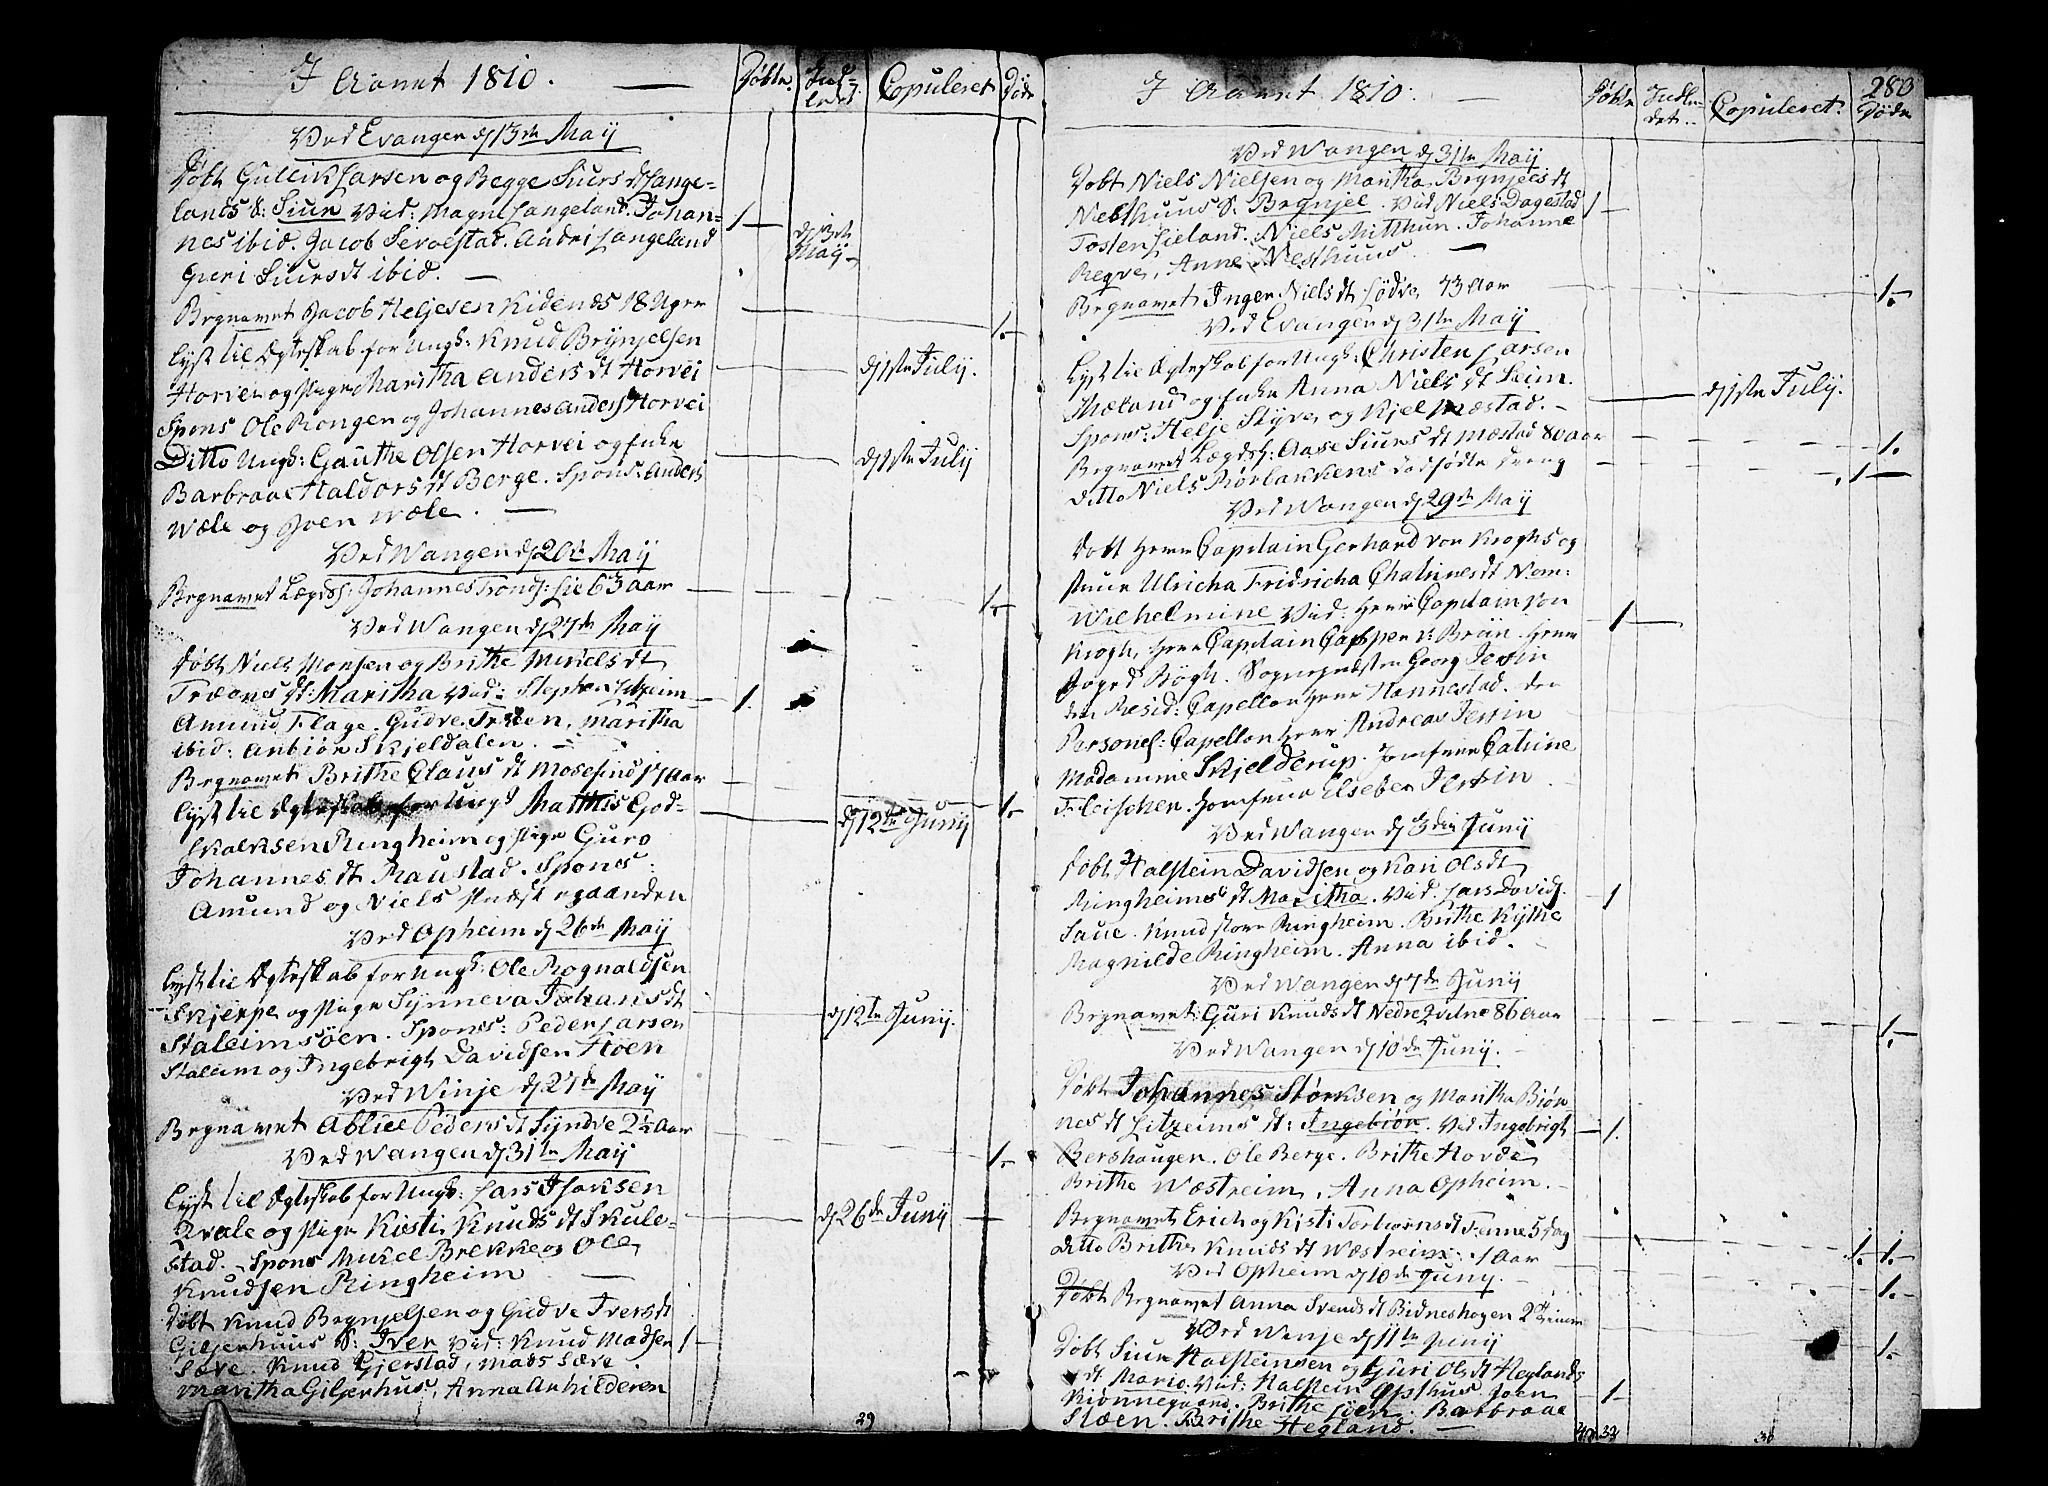 I Aaret 1810. — Døbte. Indledt. Copuleret Døde
Ved Evangen d 13de Maij
Døbt Gullik Larsen og Begge Siurs dt Lange-
lands S: Siur Vid: Magne Langeland. Johan-
nes ibid. Jacob Sevaldstad. Aadri Langeland
Guri Siurs dt ibid. —
1
d 13de
Maij
Begravet Jacob Heljesen Kidends 18 Uger
1.
Lyst til Ægteskab for Ungk: Knud Brynjelsen
Horvei og Pige Maritha Anders dt Horvei
Spons Ole Rongen og Johannes Anders: Horvei
d 1ste Julij.
Ditto Ungk: Gauthe Olsen Horvei og Enke
Barbraae Haldors dt Berge. Spons: Anders
Wæle og Joen Wæle. —
d 1ste Julij
Ved Wangen d 20de Maij
Begravet Lægds: Johannes Tronds: Lie 63 Aar
1.
Ved Wangen d 27de Maij
Døbt Niels Monsen og Brithe Mikels dt
Træens dt: Maritha Vid: Stephen Itzeim
Amund Flage. Gudve Træen. Maritha
ibid: Anbiør Skjeldalen. —
1.
Begravet Brithe Claus dt Mosefind 17 Aar
1.
Lyst til Ægteskab for Ungk Matthis God-
skalksen Ringheim og Pige Guro
Johannes dt Raustad. Spons:
Amund og Niels Præstegaarden
d 12te Junij
Ved Opheim d 26de Maij
Lyst til Ægteskab for Ungk: Ole Rognaldsen
Skjerpe og Pige Synneva Johans dt
Staleimsøen. Spons: Peder Larsen
Staleim og Ingebrigt Davidsen Høen
d 12te Junij.
Ved Winje d 27de Maij
Begravet Abliel Peders dt Syndve 2½ Aar
1.
Ved Wangen d 31te Maij
Lyst til Ægteskab for Ungk: Lars Isaksen
Qvale og Pige Kisti Knuds dt Skule-
stad. Spons Mikel Brekke og Ole
Knudsen Ringheim —
d 26de Junij
Døbt Knud Brynjelsen og Gudve Ivers dt
Giljerhuus S: Iver Vid: Knud Madsen
Sæve. Knud Gjerstad, Mads Sæve.
Maritha Giljerhus, Anna Arhilderen
1
29
I Aaret 1810. — Døbte Indle-
det. Copuleret. 280
Døde
Ved Wangen d 31te Maij
Døbt Niels Nielsen og Maritha Brynjels dt
Nesthuus S. Brynjel. Vid Niels Dagestad
Tosten Lieland. Niels Mitthun. Johanne
Regve, Anne Nesthuus. —
1
Begravet Inger Niels dt Lødve 73 Aar
1.
Ved Evangen d 31te Maij
Lyst til Ægteskab for Ungk: Christen Larsen
Mæland og Enke Anna Niels dt Seim.
Spons: Helje Styve og Kjel Mæstad. —
d 1ste Julij.
Begravet Lægds: Aase Siurs dt Mæstad 80 Aar
1.
Ditto Niels Rørbakkens Dødfødte Dreng
1
Ved Wangen d 29de Maij
Døbt Herr Capitain Gerhard von Kroghs og
Frue Ulricha Fridricha Chatrines dt Nom:
Wilhelmine Vid: Herr Capitain von
Krogh, Herr Capitain Casper v: Bröin. Herr
Foged Kogh. Sognepræsten Georg Jersin
den Resid: Capellan Herr Hannestad. den
Personel: Capellan Herr Andreas Jersin
Madamme Skjelderup. Jomfrue Catrine
Fleischer. Jomfrue Elseber Jersin
1
Ved Wangen d 3die Junij
Døbt Halstein Davidsen og Kari Ols dt
Ringheims dt Maritha. Vid. Lars Davids.
Saue. Knud store Ringheim. Brithe Kythe
Magnilde Ringheim. Anna ibid. —
1
Ved Wangen d 7de Junij
Begravet Guri Knuds dt Nedre Qvitne 86 Aar
1.
Ved Wangen d 10de Junij.
Døbt Johannes Størksen og Maritha Biør-
nes dt Litzeims dt: Ingebiør. Vid Ingebrigt
Bershaugen. Ole Berge. Brithe Horde
Brithe Wæstreim, Anna Opheim. —
1.
Begravet Erich og Kisti Torbiørns dt Fenne 5 Dag
1. 1.
Ditto Brithe Knuds dt Wæstreim 1 Aar
1.
Ved Opheim d 10de Junij.
Døbt Begravet Anna Svends dt Bidneshagen
1.
Ved Winje d 11te Junij
Døbt Siur Halsteinsen og Guri Ols dt Heglands
dt Marie. Vid: Halstein Opsthus. Joen
Kiønnegaard. Brithe Løen. Barbraae
Sloen. Brithe Hegland. —
1